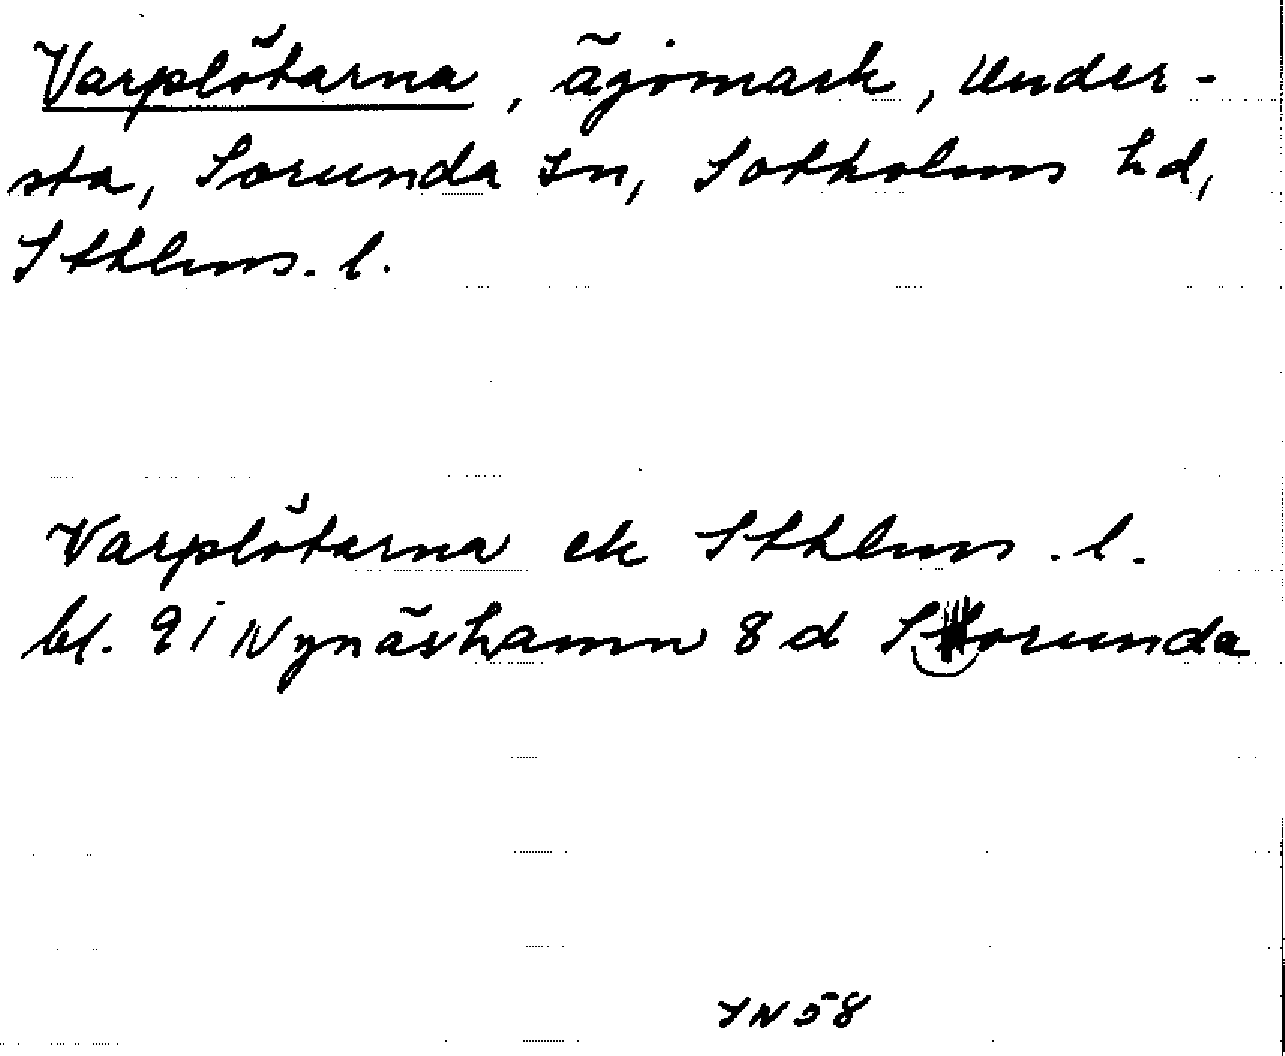 Varplötarna, ägomark, Under-
sta, Sorunda sn, Sotholms hd,
Sthlms. l.
Varplötarna ek Sthlms. l.
bl. 9i Nynäshamn 8d Sorunda